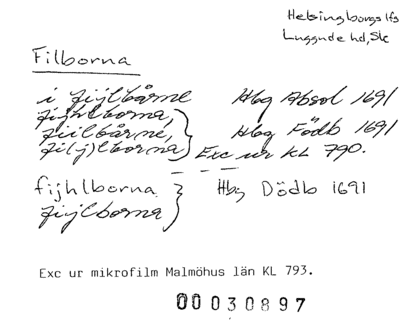 Helsingborgs lfs
Luggude hd, Sk
Filborna
i fijlbårne Hbg Absol 1691
fijhlborna,
fiilbårne, Hbg Födb 1691
fi(j)lborna Exc ur KL 790.
fijhlborna Hbg Dödb 1691
fijlborna
Exc ur mikrofilm Malmöhus län KL 793.
00030897